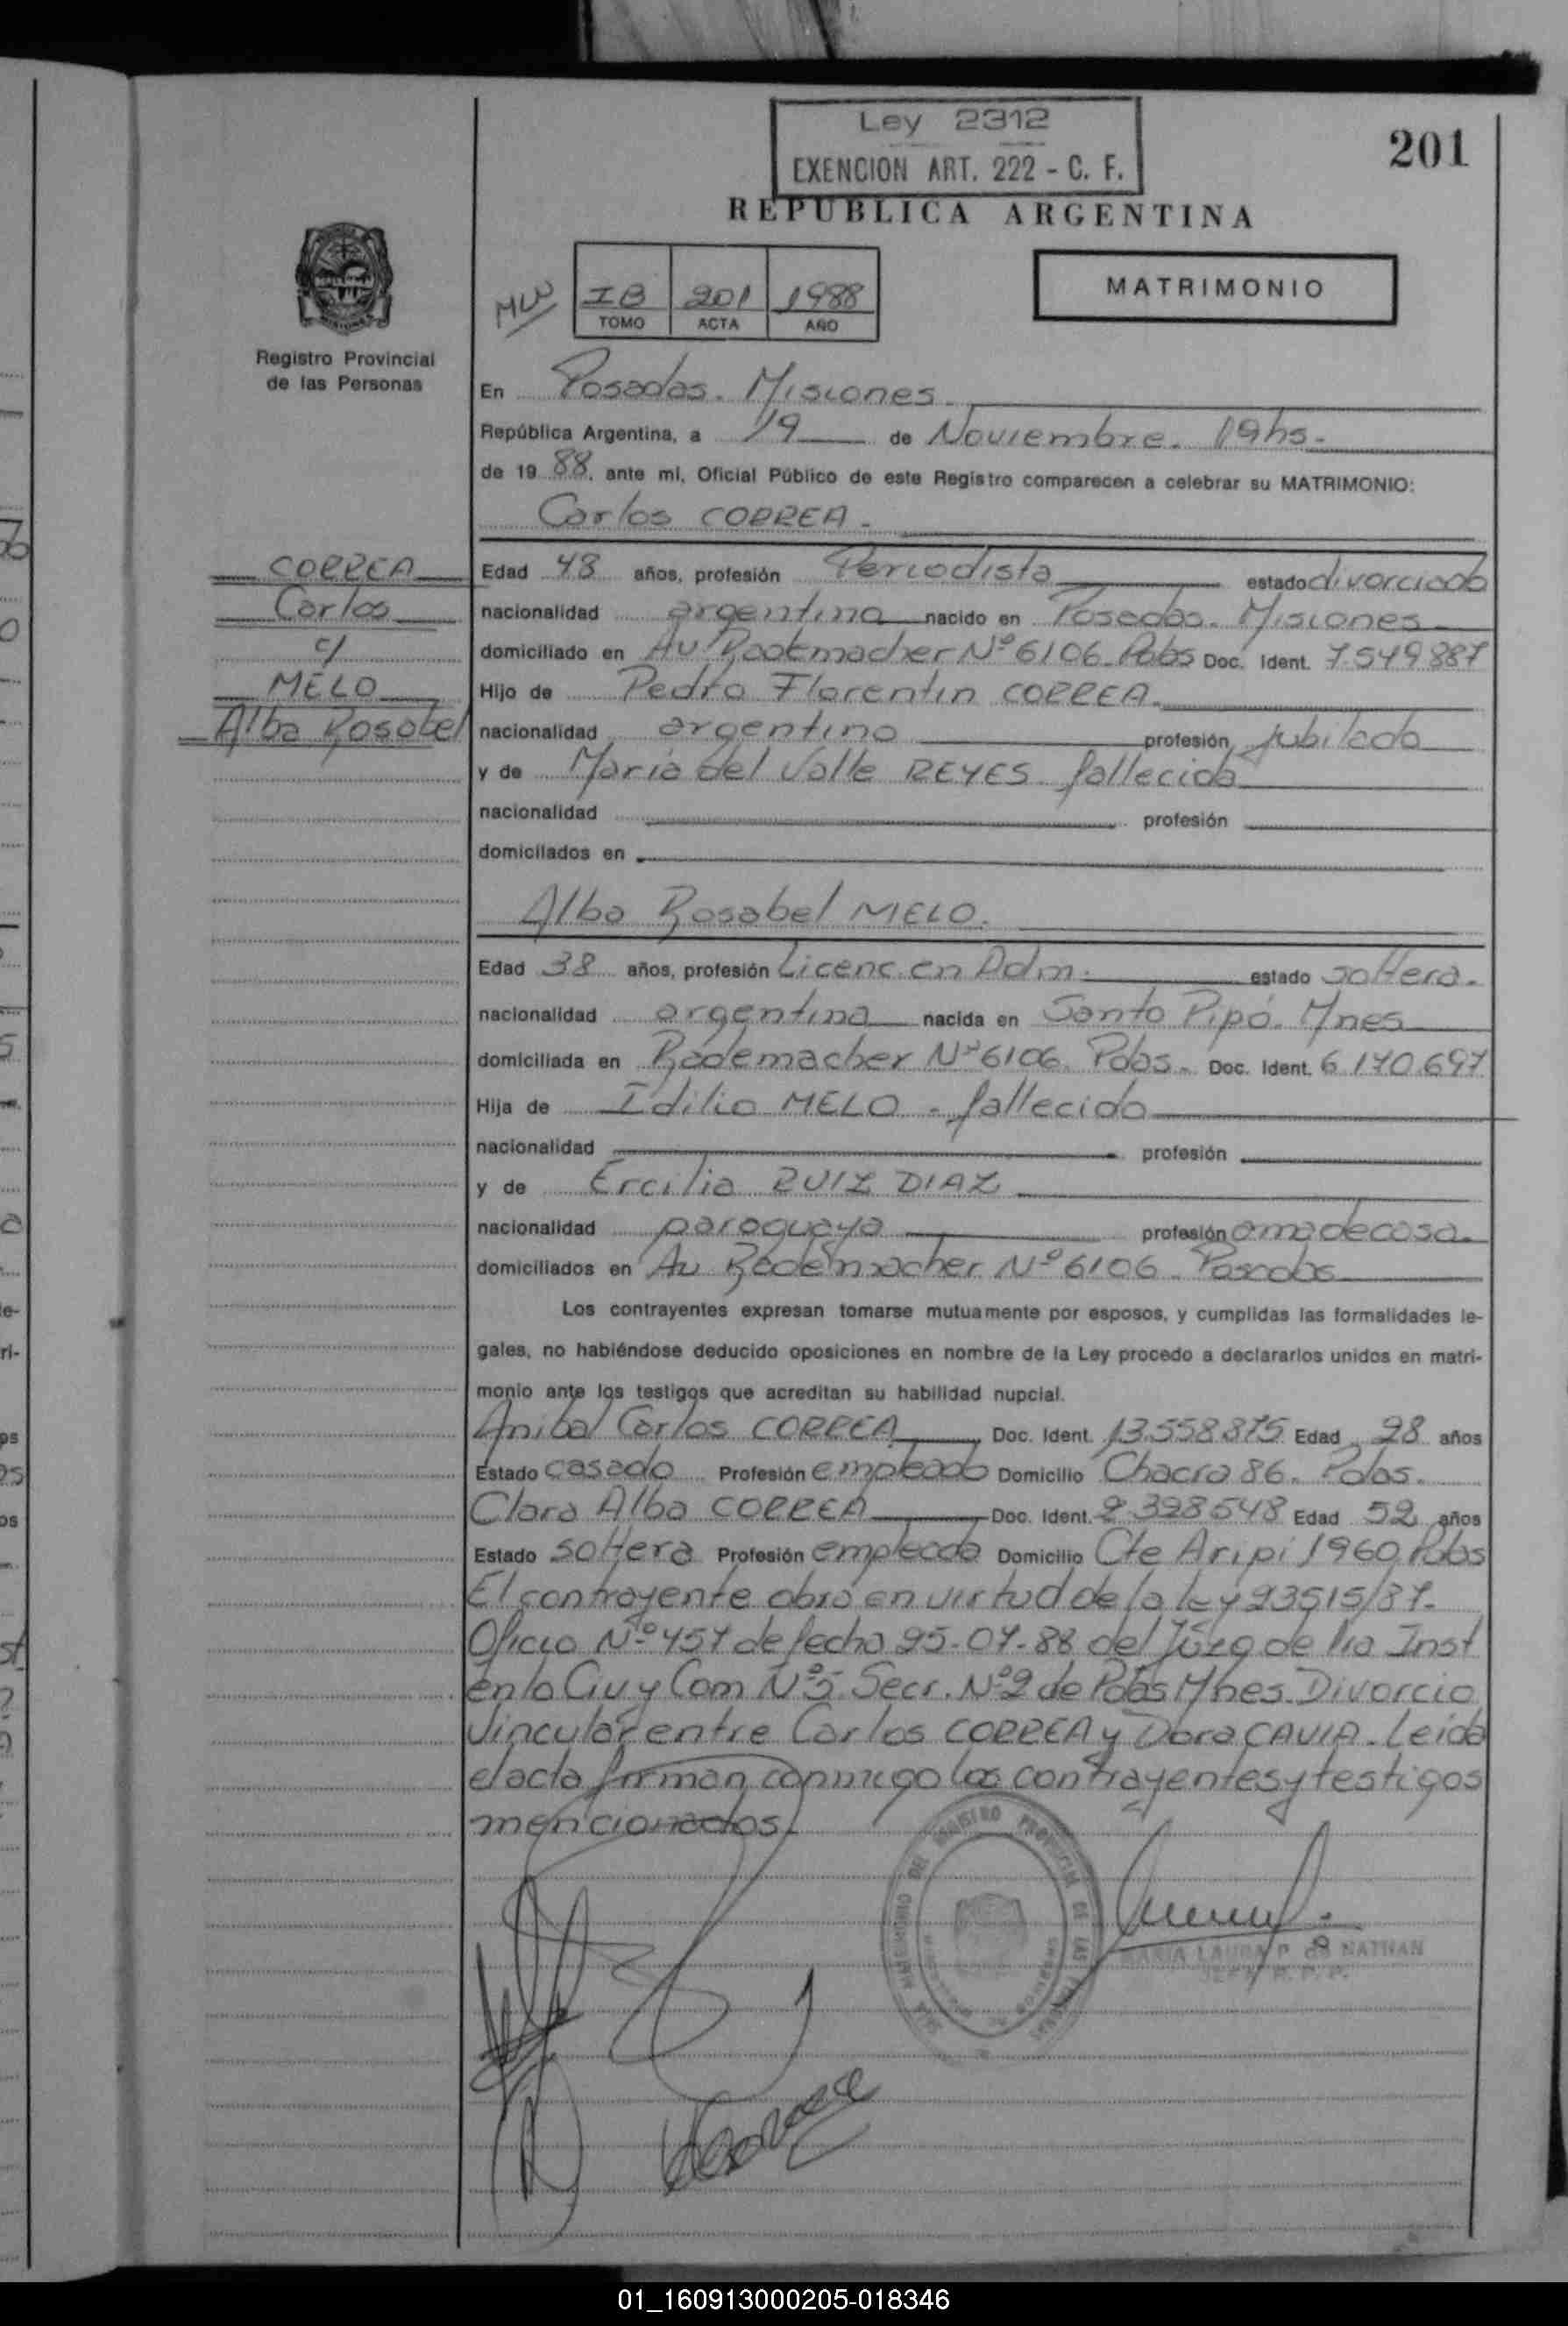 Ley 2312
EXENCION ART. 222 - C. F.
201
REPUBLICA ARGENTINA
IB 201 1988
TOMO ACTA AÑO
MATRIMONIO
Registro Provincial
de las Personas
En Posadas. Misiones.
República Argentina, a 19 de Noviembre. 19hs.
de 19 88, ante mí, Oficial Público de este Registro comparecen a celebrar su MATRIMONIO:
Carlos CORREA.
CORREA
Carlos
c/
MELO
Alba Rosabel
Edad 48 años, profesión Periodista estado divorciado
nacionalidad argentina nacido en Posadas. Misiones
domiciliado en Av. Rademacher Nº 6106 Pdas Doc. Ident. 7.549.887
Hijo de Pedro Florentin CORREA.
nacionalidad argentino profesión jubilado
y de María del Valle REYES fallecida
nacionalidad profesión
domiciliados en
Alba Rosabel MELO.
Edad 38 años, profesión Licenc. en Adm. estado soltera.
nacionalidad argentina nacida en Santo Pipó. Mnes
domiciliada en Rademacher Nº 6106 Pdas. Doc. Ident. 6.170.697
Hija de Idilio MELO - fallecido
nacionalidad profesión
y de Ercilia RUIZ DIAZ
nacionalidad paraguaya profesión ama de casa.
domiciliados en Av Rademacher Nº 6106. Posadas
Los contrayentes expresan tomarse mutuamente por esposos, y cumplidas las formalidades le-
gales, no habiéndose deducido oposiciones en nombre de la Ley procedo a declararlos unidos en matri-
monio ante los testigos que acreditan su habilidad nupcial.
Anibal Carlos CORREA Doc. Ident. 13.558.875 Edad 28 años
Estado casado Profesión empleado Domicilio Chacra 86. Pdas.
Clara Alba CORREA Doc. Ident. 2.328.548 Edad 52 años
Estado soltera Profesión empleada Domicilio Cte Aripi 1960 Pdas
El contrayente obró en virtud de la ley 23515/87.
Oficio Nº 457 de fecha 25-07-88 del Juzg de 1ra Inst
en lo Civ y Com Nº 5. Secr. Nº 2 de Pdas Mnes. Divorcio
Vincular entre Carlos CORREA y Dora CAVIA. Leida
el acta firman conmigo los contrayentes y testigos
mencionados.
MARIA LAURA P. de NATHAN
JEFA R. P. P.
01_160913000205-018346